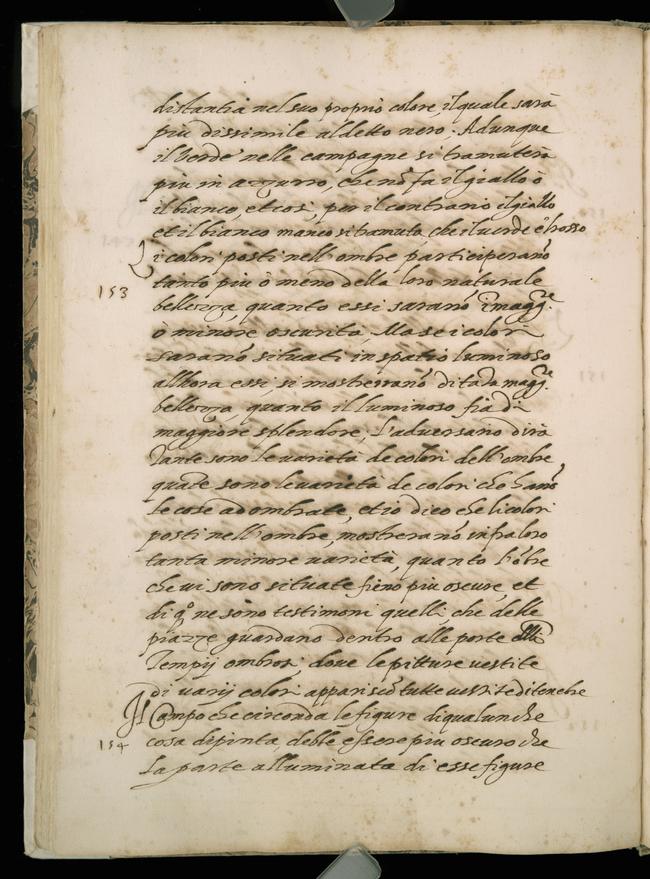 distantia nel suo proprio colore, il quale sarà
più dissimile al detto nero. Adunque
il Verde nelle campagne si tramuterà
più in azzurro, che nõ fa il giallo ò
il bianco, et cosi, per il contrario il giallo
et il bianco manco si tramuta, che il uerde e'l rosso
I colori posti nell'ombre participeranõ
153
tanto più ò meno della loro naturale
bellezza, quanto essi saranõ ĩ magg.re
ò minore oscurità, Ma se i colori
saranõ situati in spatio luminoso
allhora essi, si mostrerranõ di tãta magg.re
bellezza, quanto il luminoso fia di
maggiore splendore, L'adversario dirà
Tante sono le varietà de colori dell'ombre
quate sono le varietà de colori che hanõ
le cose adombrate, et io dico che li colori
posti nell'ombre, mostreranõ infra loro
tanta minore varietà, quanto l'õbre
che vi sono situate fieno più oscure, et
di q.o ne sono testimoni quelli, che delle
piazze guardano dentro alle porte delli
Tempij ombrosi, dove le pitture vestite
di varij colori appariscõ tutte vestite di tenebre
Il Campo che circonda le figure di qualunche
154
cosa dipinta, debbe essere più oscuro che
la parte alluminata di esse figure